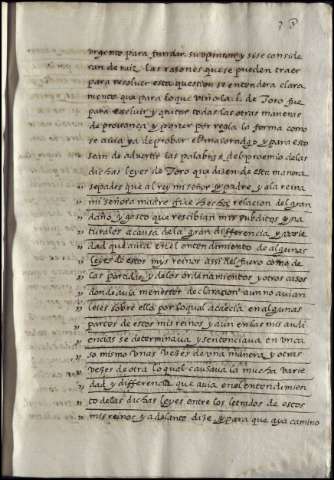 urgento para fundar su opinion y si se conside
ran de raiz las razones que se pueden traer
para resoluer esta question se entendera clara
mente que para lo que vino la l. de Toro fue
para excluir y quitar todas las otras maneras
de prouança y poner por regla la forma como
se auia ya de probar el mayoradgo, y para esto
sean de aduertir las palabras del proemio de las
dichas leyes de Toro que dizen de esta manera.
sepades que al rey mi señor y padre, y a la reina
mi señora madre fue hecha relacion del gran
daño, y gasto que rescibian mis subditos y na
turales a causa de la gran differencia, y varie
dad que auia en el entendimiento de algunas
leyes de estos mys reinos assi del fuero como de
las partidas, y de los ordenamientos y otros casos
donde auia menester declaracion aun no auian
leies sobre ello por lo qual acaecia en algunas
partes de estos mis reinos y aun en las mis audi
encias se determinaua, y sentenciaua en un ca
so mismo unas vezes de una manera, y otras
vezes de otra lo qual causaua la mucha varie
dad y differencia que auia en el entendimien
to de las dichas leyes entre los letrados de estos
mis reinos y adelante dize, y para que qua camino